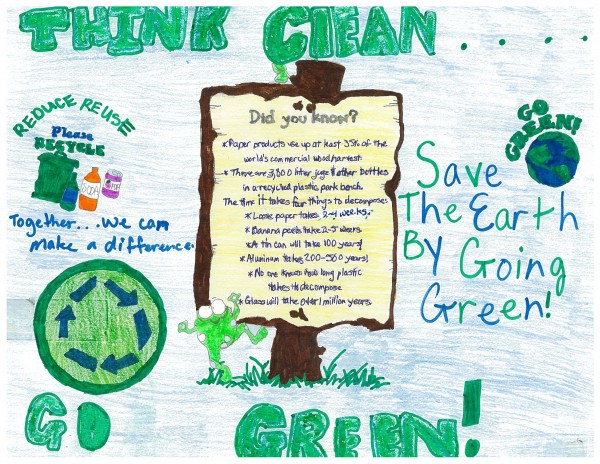 THINK CLEAN.....
REDUCE REUSE
Please
RECYCLE
SODA
POP
Together...We can
make a difference.
Did you know?
*Paper products use up at least 35% of the
world's commercial wood harvest
*There are 3,800 liter jugs & other bottles
in a recycled plastic park bench.
The time it takes for things to decompose:
*Loose paper takes 2-4 weeks.
*Banana peels take 2-5 weeks
*A tin can will take 100 years!
*Aluminum takes 200-500 years!
*No one knows how long plastic
takes to decompose
*Glass will take over 1 million years
GO
GREEN!
Save
The Earth
By Going
Green!
GO GREEN!